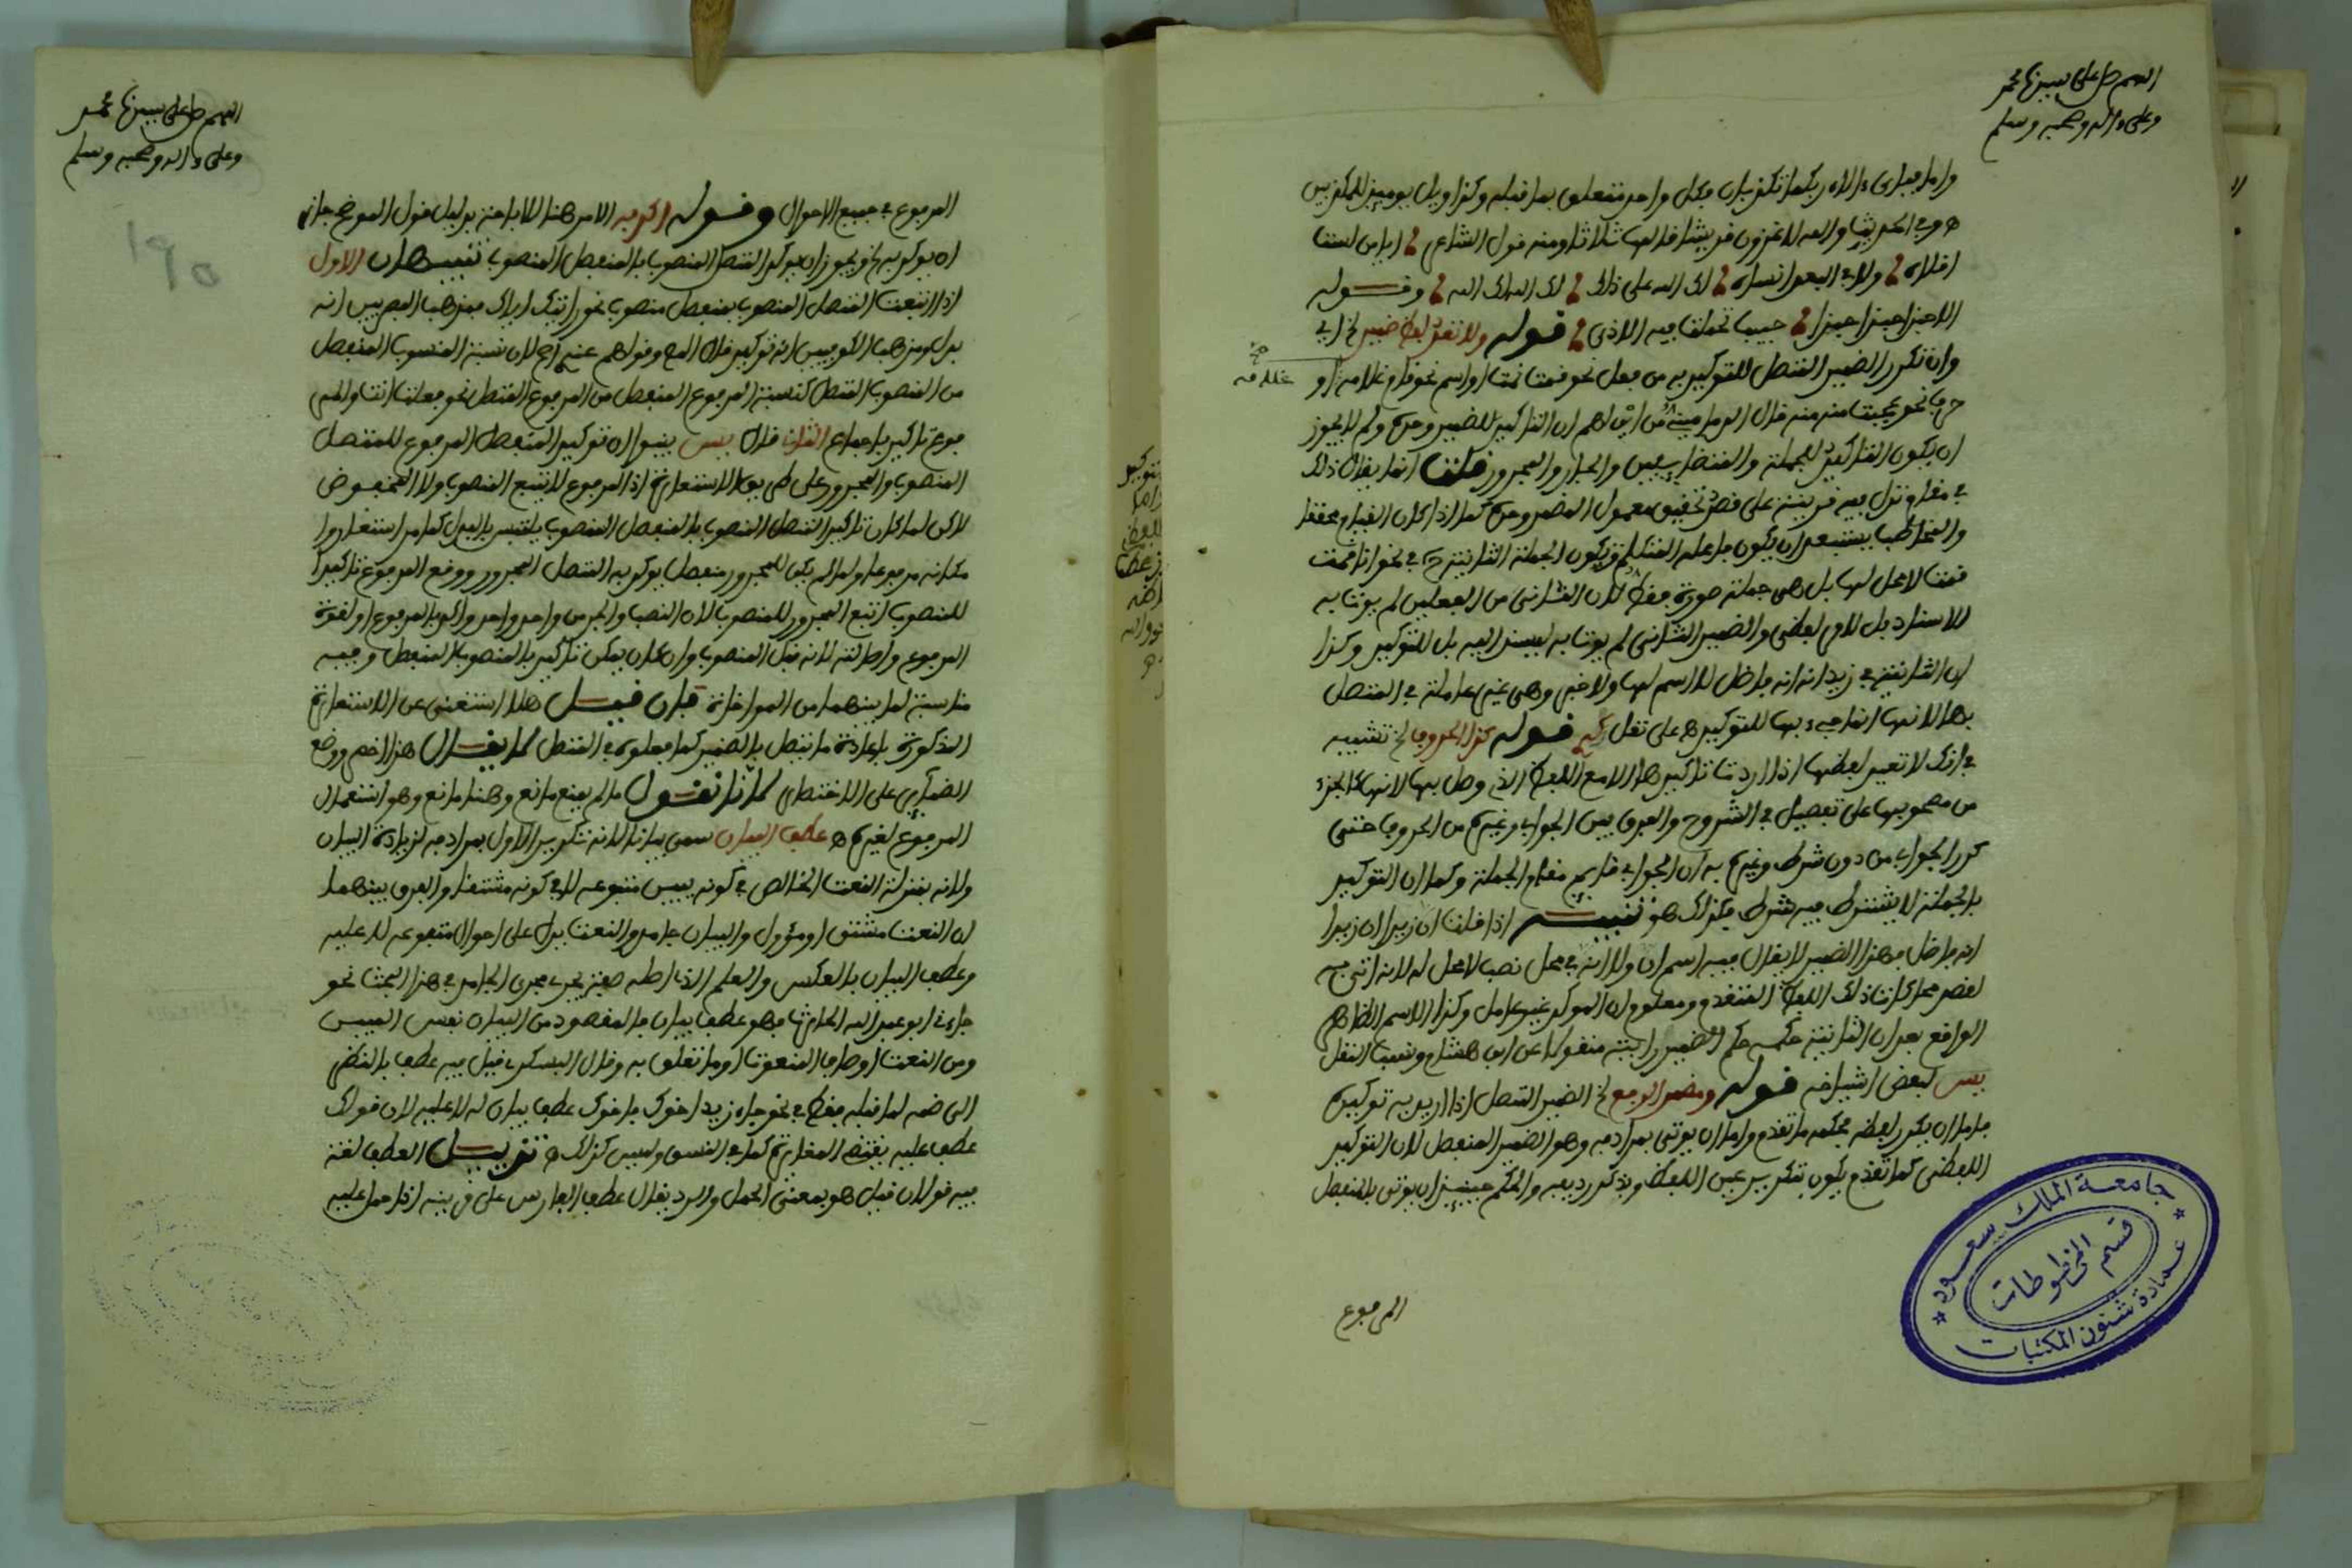 اللهم صل على سيدنا محمد
وعلى ءاله وصحبه وسلم
واما فبأي ءالاء ربكما تكذبان فكل واحد متعلق بما قبله وكذا ويل يومئذ للمكذبين
وفي الحديث والله لاغزون قريشا قالها ثلاثا ومنه قول الشاعر ايا من لست
اقلاه ولا في البعد انساه لك الله على ذاك لك الله لك الله وقوله
الا حبذا حبذا حبذا حبيب تحملت فيه الاذى قوله ولا تعد لفظ ضمير الخ اي
وان تكرر الضمير المتصل للتوكيد من فعل نحو قمت قمت او اسم نحو غلامه او
غلامه صح
حرف نحو عجبت منه منه قال الدماميني من اين لهم ان التاكيد للضمير وحده ولم لا يجوز
ان يكون التاكيد للجملة والمتضايفين والجار والمجرور قلت انما يقال ذلك
في مقام تدل فيه قرينة على قصد تحقيق معمول المضمر وحده كما اذا كان القيام محققا
والمخاطب يستبعد ان يكون فاعله المتكلم فتكون الجملة الثانية في نحو انا قمت
قمت لا محل لها بل هي جملة صورة فقط لان الثاني من الفعلين لم يوت به
للاسناد بل لامر لفظي والضمير الثاني لم يوت به ليسند اليه بل للتوكيد وكذا
ان الثانية في زيد انه انه فاضل لا اسم لها ولا خبر وهي غير عاملة في المتصل
بها لانها انما جيء بها للتوكيد على نقل قوله كذا الحروف الخ تشبيه
في انك لا تعيد لفظها اذا اردت تاكيدها الا مع اللفظ الذي وصل بها لانها كالجزء
من مصحوبها على تفصيل في الشروح والفرق بين الجواب وغيره من الحروف حتى
كرر الجواب من دون شرط وغيره به ان الجواب قايم مقام الجملة وكما ان التوكيد
بالجملة لا يشترط فيه شرط فكذلك هو تنبيه اذا قلت ان زيدا ان زيدا
انه فاضل فهذا الضمير لا يقال فيه اسم ان ولا انه في محل نصب لا محل له لانه اتي به
لقصد محاكاة ذلك اللفظ المتقدم ومعلوم ان الموكد غير عامل وكذا الاسم الظاهر
الواقع بعد ان الثانية حكمه حكم الضمير رايته منقولا عن ابن هشام ونسب النقل
يس لبعض اشياخه قوله ومضمر الرفع الخ الضمير المتصل اذا اريد به توكيده
فاما ان يكرر لفظه فحكمه ما تقدم واما ان يوتى بمرادفه وهو الضمير المنفصل لان التوكيد
اللفظي كما تقدم يكون بتكرير عين اللفظ وبذكر رديفه والحكم حينئذ ان يوتى بالمنفصل
المرفوع
جامعة الملك سعود
قسم المخطوطات
عمادة شئون المكتبات
اللهم صل على سيدنا محمد
وعلى ءاله وصحبه وسلم
١٩٥
المرفوع في جميع الاحوال وقوله اكد به الامر هنا للاباحة بدليل قول الموضح جاز
ان يوكد به الخ ويجوز ان يوكد المتصل المنصوب بالمنفصل المنصوب تنبيهان الاول
اذا اتبعت المتصل المنصوب بمنفصل منصوب نحو رايتك اياك فمذهب البصريين انه
بدل ومذهب الكوفيين انه توكيد قال المص وقولهم عندي ارجح لان نسبة المنصوب المنفصل
من المنصوب المتصل كنسبة المرفوع المنفصل من المرفوع المتصل نحو فعلت انت والمر
فوع تاكيد باجماع الثاني قال يس ينبغي ان توكيد المنفصل المرفوع للمتصل
المنصوب والمجرور على طريق الاستعارة اذ المرفوع لا يتبع المنصوب ولا المخفوض
لاكن لما كان تاكيد المتصل المنصوب بالمنفصل المنصوب يلتبس بالبدل كما مر استعاروا
مكانه مرفوعا ولما لم يكن للمجرور منفصل يوكد به المتصل المجرور ووقع المرفوع تاكيدا
للمنصوب اتبع المجرور للمنصوب لان النصب والجر من واحد واحد واكد بالمرفوع اولقوة
المرفوع واصالته لانه قبل المنصوب وان كان يمكن تاكيد بالمنصوب المنفصل وفيه
مناسبة لما بينهما من المواخاة فان قيل هلا استغني عن الاستعارة
المذكورة باعادة ما يتصل بالضمير كما فعلوه في المتصل لا يقال هذا اخصر ووضع
الضماير على الاختصار لانا نقول ما لم يمنع مانع وهنا مانع وهو استعمال
المرفوع لغيره عطف البيان سمي بيانا لانه تكرير الاول بمرادفه لزيادة البيان
ولانه بمنزلة النعت الخالص في كونه يبين متبوعه لا في كونه مشتقا والفرق بينهما
ان النعت مشتق او مؤول والبيان جامد والنعت يدل على احوال متبوعه لا عليه
وعطف البيان بالعكس والعلم الذي اصله صفة يجري مجرى الجامد في هذا البحث نحو
جاءني ابو عبد الله الحارث فهو عطف بيان فالمقصود من البيان نفس المبين
ومن النعت اوصاف المنعوت او ما تعلق به وقال البسكري قيل فيه عطف بالنظر
الى ضمه لما قبله فقط في نحو جاء زيد اخوك فاخوك عطف بيان له لا عليه لان قولك
عطف عليه يقتضي المغايرة كما في النسق وليس كذلك تذييل العطف لغة
فيه قولان قيل هو بمعنى الحمل والرد يقال عطف الفارس على قرينه اذا حمل عليه